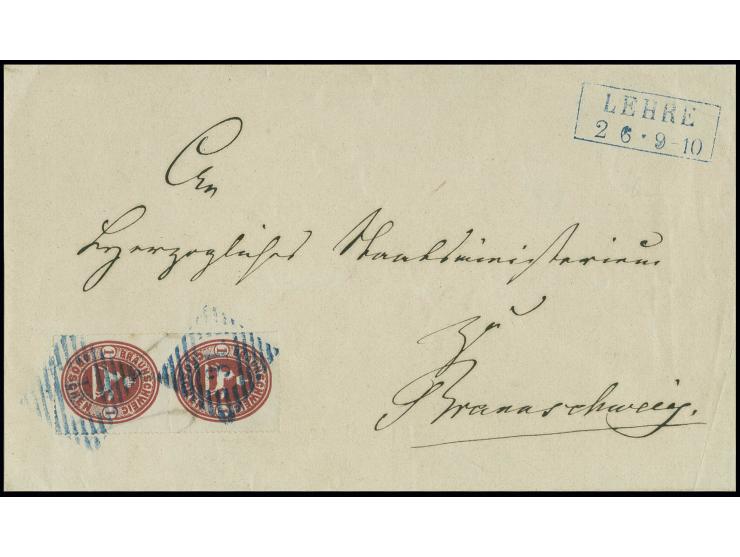 LEHRE
2 6 · 9-10
An
Herzogliches Staatsministerium
zu
Braunschweig.
BRAUNSCHWEIG 1 1
BRAUNSCHWEIG 1 1